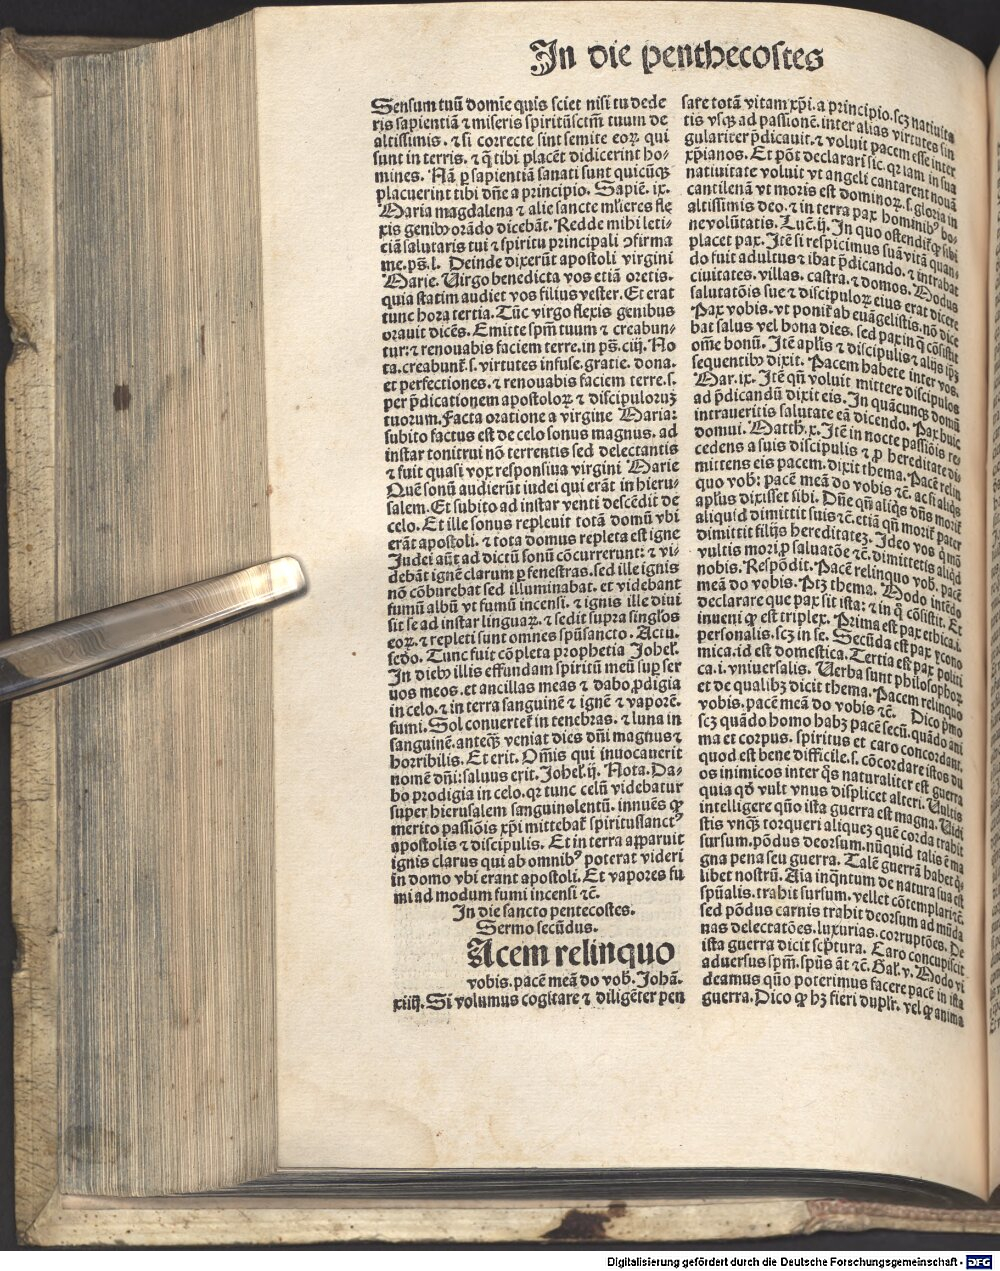 In die penthecostes
Sensum tuū domīe quis sciet nisi tu dede
ris sapientiā ⁊ miseris spiritūsctm̄ tuum de
altissimis. ⁊ si correcte sint semite eoꝝ qui
sunt in terris. ⁊ q̄ tibi placēt didicerint ho-
mines. Nā ꝑ sapientiam sanati sunt quicūqꝫ
placuerint tibi dn̄e a principio. Sapiē. ix.
Maria magdalena ⁊ alie sancte mĺieres fle
xis genibꝰ orādo dicebāt. Redde mihi leti-
ciā salutaris tui ⁊ spiritu principali ↄfirma
me. ps̄. l. Deinde dixerūt apostoli virgini
Marie. Uirgo benedicta vos etiā oretis.
quia statim audiet vos filius vester. Et erat
tunc hora tertia. Tūc virgo flexis genibus
orauit dicēs. Emitte spm̄ tuum ⁊ creabun-
tur: ⁊ renouabis faciem terre. in ps̄. ciij. No
ta. creabunt᷑ .s. virtutes infuse. gratie. dona.
et perfectiones. ⁊ renouabis faciem terre. s.
per p̄dicationem apostoloꝝ ⁊ discipulorum
tuorum. Facta oratione a virgine Maria:
subito factus est de celo sonus magnus. ad
instar tonitrui nō terrentis sed delectantis
⁊ fuit quasi vox responsiua virgini Marie
Quē sonū audierūt iudei qui erāt in hieru-
salem. Et subito ad instar venti descēdit de
celo. Et ille sonus repleuit totā domū vbi
erāt apostoli. ⁊ tota domus repleta est igne
Iudei aūt ad dictū sonū cōcurrerunt: ⁊ vi-
debāt ignē clarum ꝑ fenestras. sed ille ignis
nō cōburebat sed illuminabat. et videbant
fumū albū vt fumū incensi. ⁊ ignis ille diui
sit se ad instar linguaꝝ. ⁊ sedit supra singłos
eoꝝ. ⁊ repleti sunt omnes spūsancto. Actu.
scdo. Tunc fuit cōpleta prophetia Johel᷑.
In diebꝰ illis effundam spiritū meū suꝑ ser
uos meos. et ancillas meas ⁊ dabo ꝓdigia
in celo. ⁊ in terra sanguinē ⁊ ignē ⁊ vaporē.
fumi. Sol conuertet᷑ in tenebras. ⁊ luna in
sanguinē. anteqꝫ veniat dies dn̄i magnus ⁊
horribilis. Et erit. Om̄is qui inuocauerit
nomē dn̄i: saluus erit. Johel᷑. ij. Nota. Da-
bo prodigia in celo. qꝛ tunc celū videbatur
super hierusalem sanguinolentū. innuēs ꝙ
merito passiōis xp̄i mittebat᷑ spiritussanctꝰ
apostolis ⁊ discipulis. Et in terra apparuit
ignis clarus qui ab omnibꝰ poterat videri
in domo vbi erant apostoli. Et vapores fu
mi ad modum fumi incensi ⁊c̄.
In die sancto pentecostes.
Sermo secūdus.
Acem relinquo
vobis. pacē meā do vob᷑. Johā.
xiiij. Si volumus cogitare ⁊ diligēter pen
sare totā vitam xp̄i. a principio. scꝫ natiuita
tis vsqꝫ ad passionē. inter alias virtutes sin
gulariter p̄dicauit. ⁊ voluit pacem esse inter
xp̄ianos. Et pōt declarari sic. qꝛ iam in sua
natiuitate voluit vt angeli cantarent nouā
cantilenā vt moris est dominoꝝ. s. gloria in
altissimis deo. ⁊ in terra pax hominibꝰ bo-
ne volūtatis. Luc̄. ij. In quo ostendit᷑ ꝙ sibi
placet pax. Itē si respicimus suā vitā quan-
do fuit adultus ⁊ ibat p̄dicando. ⁊ intrabat
ciuitates. villas. castra. ⁊ domos. Modus
salutatōis sue ⁊ discipuloꝝ eius erat dicere
Pax vobis. vt ponit᷑ ab euāgelistis. nō dice
bat salus vel bona dies. sed pax in q̄ cōsistit
om̄e bonū. Itē aplis ⁊ discipulis ⁊ alijs ip̄ꝫ
sequentibꝰ dixit. Pacem habete inter vos.
Mar. ix. Itē qn̄ voluit mittere discipulos
ad p̄dicandū dixit eis. In quācunqꝫ domū
intraueritis salutate eā dicendo. Pax huic
domui. Matth̄. x. Itē in nocte passiōis re-
cedens a suis discipulis ⁊ ꝓ hereditate di-
mittens eis pacem. dixit thema. Pacē relin
quo vob᷑: pacē meā do vobis ⁊c̄. ac si aliqs
aplus dixisset sibi. Dn̄e qn̄ aliqs dn̄s morit᷑
aliquid dimittit suis ⁊c̄. etiā qn̄ morit᷑ pater
dimittit filijs hereditatez. Ideo vos q̄ mō
vultis mori ꝓ saluatōe ⁊c̄. dimittetis aliqd
nobis. Respōdit. Pacē relinquo vob᷑. pacē
meā do vobis. Ptꝫ thema. Modo intēdo
declarare que pax sit ista: ⁊ in q̄ cōsistit. Et
inueni ꝙ est triplex. Prima est pax ethica. i.
personalis. scꝫ in se. Secūda est pax ycono
mica. id est domestica. Tertia est pax politi
ca. i. vniuersalis. Uerba sunt philosophoꝝ
et de qualibꝫ dicit thema. Pacem relinquo
vobis. pacē meā do vobis ⁊c̄. Dico p̄mo
scꝫ quādo homo habꝫ pacē secū. quādo ani
ma et corpus. spiritus et caro concordant.
quod est bene difficile. s. cōcordare istos du
os inimicos inter q̄s naturaliter est guerra
quia qd̄ vult vnus displicet alteri. Uultis
intelligere qūo ista guerra est magna. Uidi
stis vnqꝫ torqueri aliquez quē corda trahit
sursum. pōdus deorsum. nūquid talis ē ma
gna pena seu guerra. Talē guerrā habet q̄-
libet nostrū. Aīa inq̄ntum de natura sua est
spūalis. trahit sursum. vellet cōtemplari ⁊c̄.
sed pōdus carnis trahit deorsum ad mūda
nas delectatōes. luxurias. corruptōes. De
ista guerra dicit scp̄tura. Caro concupiscit
aduersus spm̄. spūs āt ⁊c̄. Gal᷑. v. Modo vi
deamus qūo poterimus facere pacē in ista
guerra. Dico ꝙ hꝫ fieri duplr̄. vel ꝙ anima
Digitalisierung gefördert durch die Deutsche Forschungsgemeinschaft - DFG